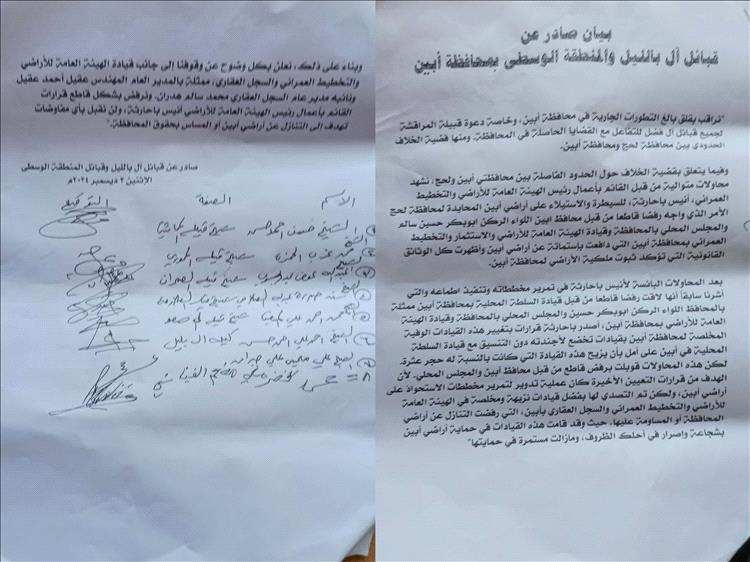 بيان صادر عن
قبائل آل بالليل والمنطقة الوسطى بمحافظة أبين
"نراقب بقلق بالغ التطورات الجارية في محافظة أبين، وخاصة دعوة قبيلة المراقشة
لجميع قبائل آل فضل للتفاعل مع القضايا الحاصلة في المحافظة. ومنها قضية الخلاف
الحدودي بين محافظة لحج ومحافظة أبين.
وفيما يتعلق بقضية الخلاف حول الحدود الفاصلة بين محافظتي أبين ولحج، نشهد
محاولات متوالية من قبل القائم بأعمال رئيس الهيئة العامة للأراضي والتخطيط
العمراني، أنيس باحارثة، للسيطرة والاستيلاء على أراضي أبين المحايدة لمحافظة لحج
الأمر الذي واجه رفضا قاطعا من قبل محافظ ابين اللواء الركن ابوبكر حسين سالم
والمجلس المحلي بالمحافظة وقيادة الهيئة العامة للأراضي والاستثمار والتخطيط
العمراني بمحافظة أبين التي دافعت بإستماتة عن أراضي أبين وأظهرت كل الوثائق
القانونية التي تؤكد ثبوت ملكية الأراضي لمحافظة أبين.
بعد المحاولات البائسة لأنيس باحارثة في تمرير مخططاته وتنفيذ اطماعه والتي
أشرنا سابقا أنها لاقت رفضا قاطعا من قبل قيادة السلطة المحلية بمحافظة أبين ممثلة
بالمحافظ اللواء الركن ابوبكر حسين والمجلس المحلي بالمحافظة وقيادة الهيئة
العامة للأراضي بمحافظة أبين، أصدر باحارثة قرارات بتغيير هذه القيادات الوفية
المخلصة لمحافظة أبين بقيادات تخضع لأجندته دون التنسيق مع قيادة السلطة
المحلية في أبين على أمل بأن يزيح هذه القيادة التي كانت بالنسبة له حجر عثرة.
لكن هذه المحاولات قوبلت برفض قاطع من قبل محافظ أبين والمجلس المحلي. لأن
الهدف من قرارات التعيين الأخيرة كان عملية تدوير لتمرير مخططات الاستحواذ على
أراضي أبين، ولكن تم التصدي لها بفضل قيادات نزيهة ومخلصة في الهيئة العامة
للأراضي والتخطيط العمراني والسجل العقاري بأبين، التي رفضت التنازل عن أراضي
المحافظة أو المساومة عليها. حيث وقد قامت هذه القيادات في حماية أراضي أبين
بشجاعة وإصرار في أحلك الظروف، ومازالت مستمرة في حمايتها"
وبناءً على ذلك، نعلن بكل وضوح عن وقوفنا إلى جانب قيادة الهيئة العامة للأراضي
والتخطيط العمراني والسجل العقاري، ممثلة بالمدير العام المهندس عقيل أحمد عقيل
ونائبه مدير عام السجل العقاري محمد سالم هدران. ونرفض بشكل قاطع قرارات
القائم بأعمال رئيس الهيئة العامة للأراضي أنيس باحارثة، ولن نقبل بأي مفاوضات
تهدف إلى التنازل عن أراضي أبين أو المساس بحقوق المحافظة."
صادر عن قبائل آل بالليل وقبائل المنطقة الوسطى
الاثنين ٢ ديسمبر ٢٠٢٤م
الاسم الصفة التوقيع
الشيخ حسن احمد حسن شيخ قبيلة
شيخ قبيلة
شيخ قبيلة
شيخ قبيلة
الشيخ احمد علي احمد حسن